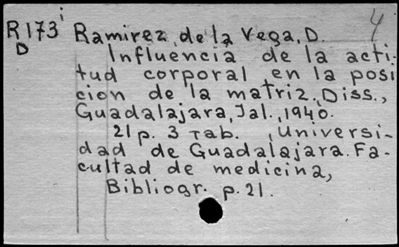 4
R173i Ramirez, de la Vega, D.
D Influencia de la acti-
tud corporal en la posi
cion de la matriz., Diss.,
Guadalajara, Jal., 1940.
21 p. 3 Tab. , Universi-
dad de Guadalajara. Fa-
cultad de medicina,
Bibliogr. p. 21.